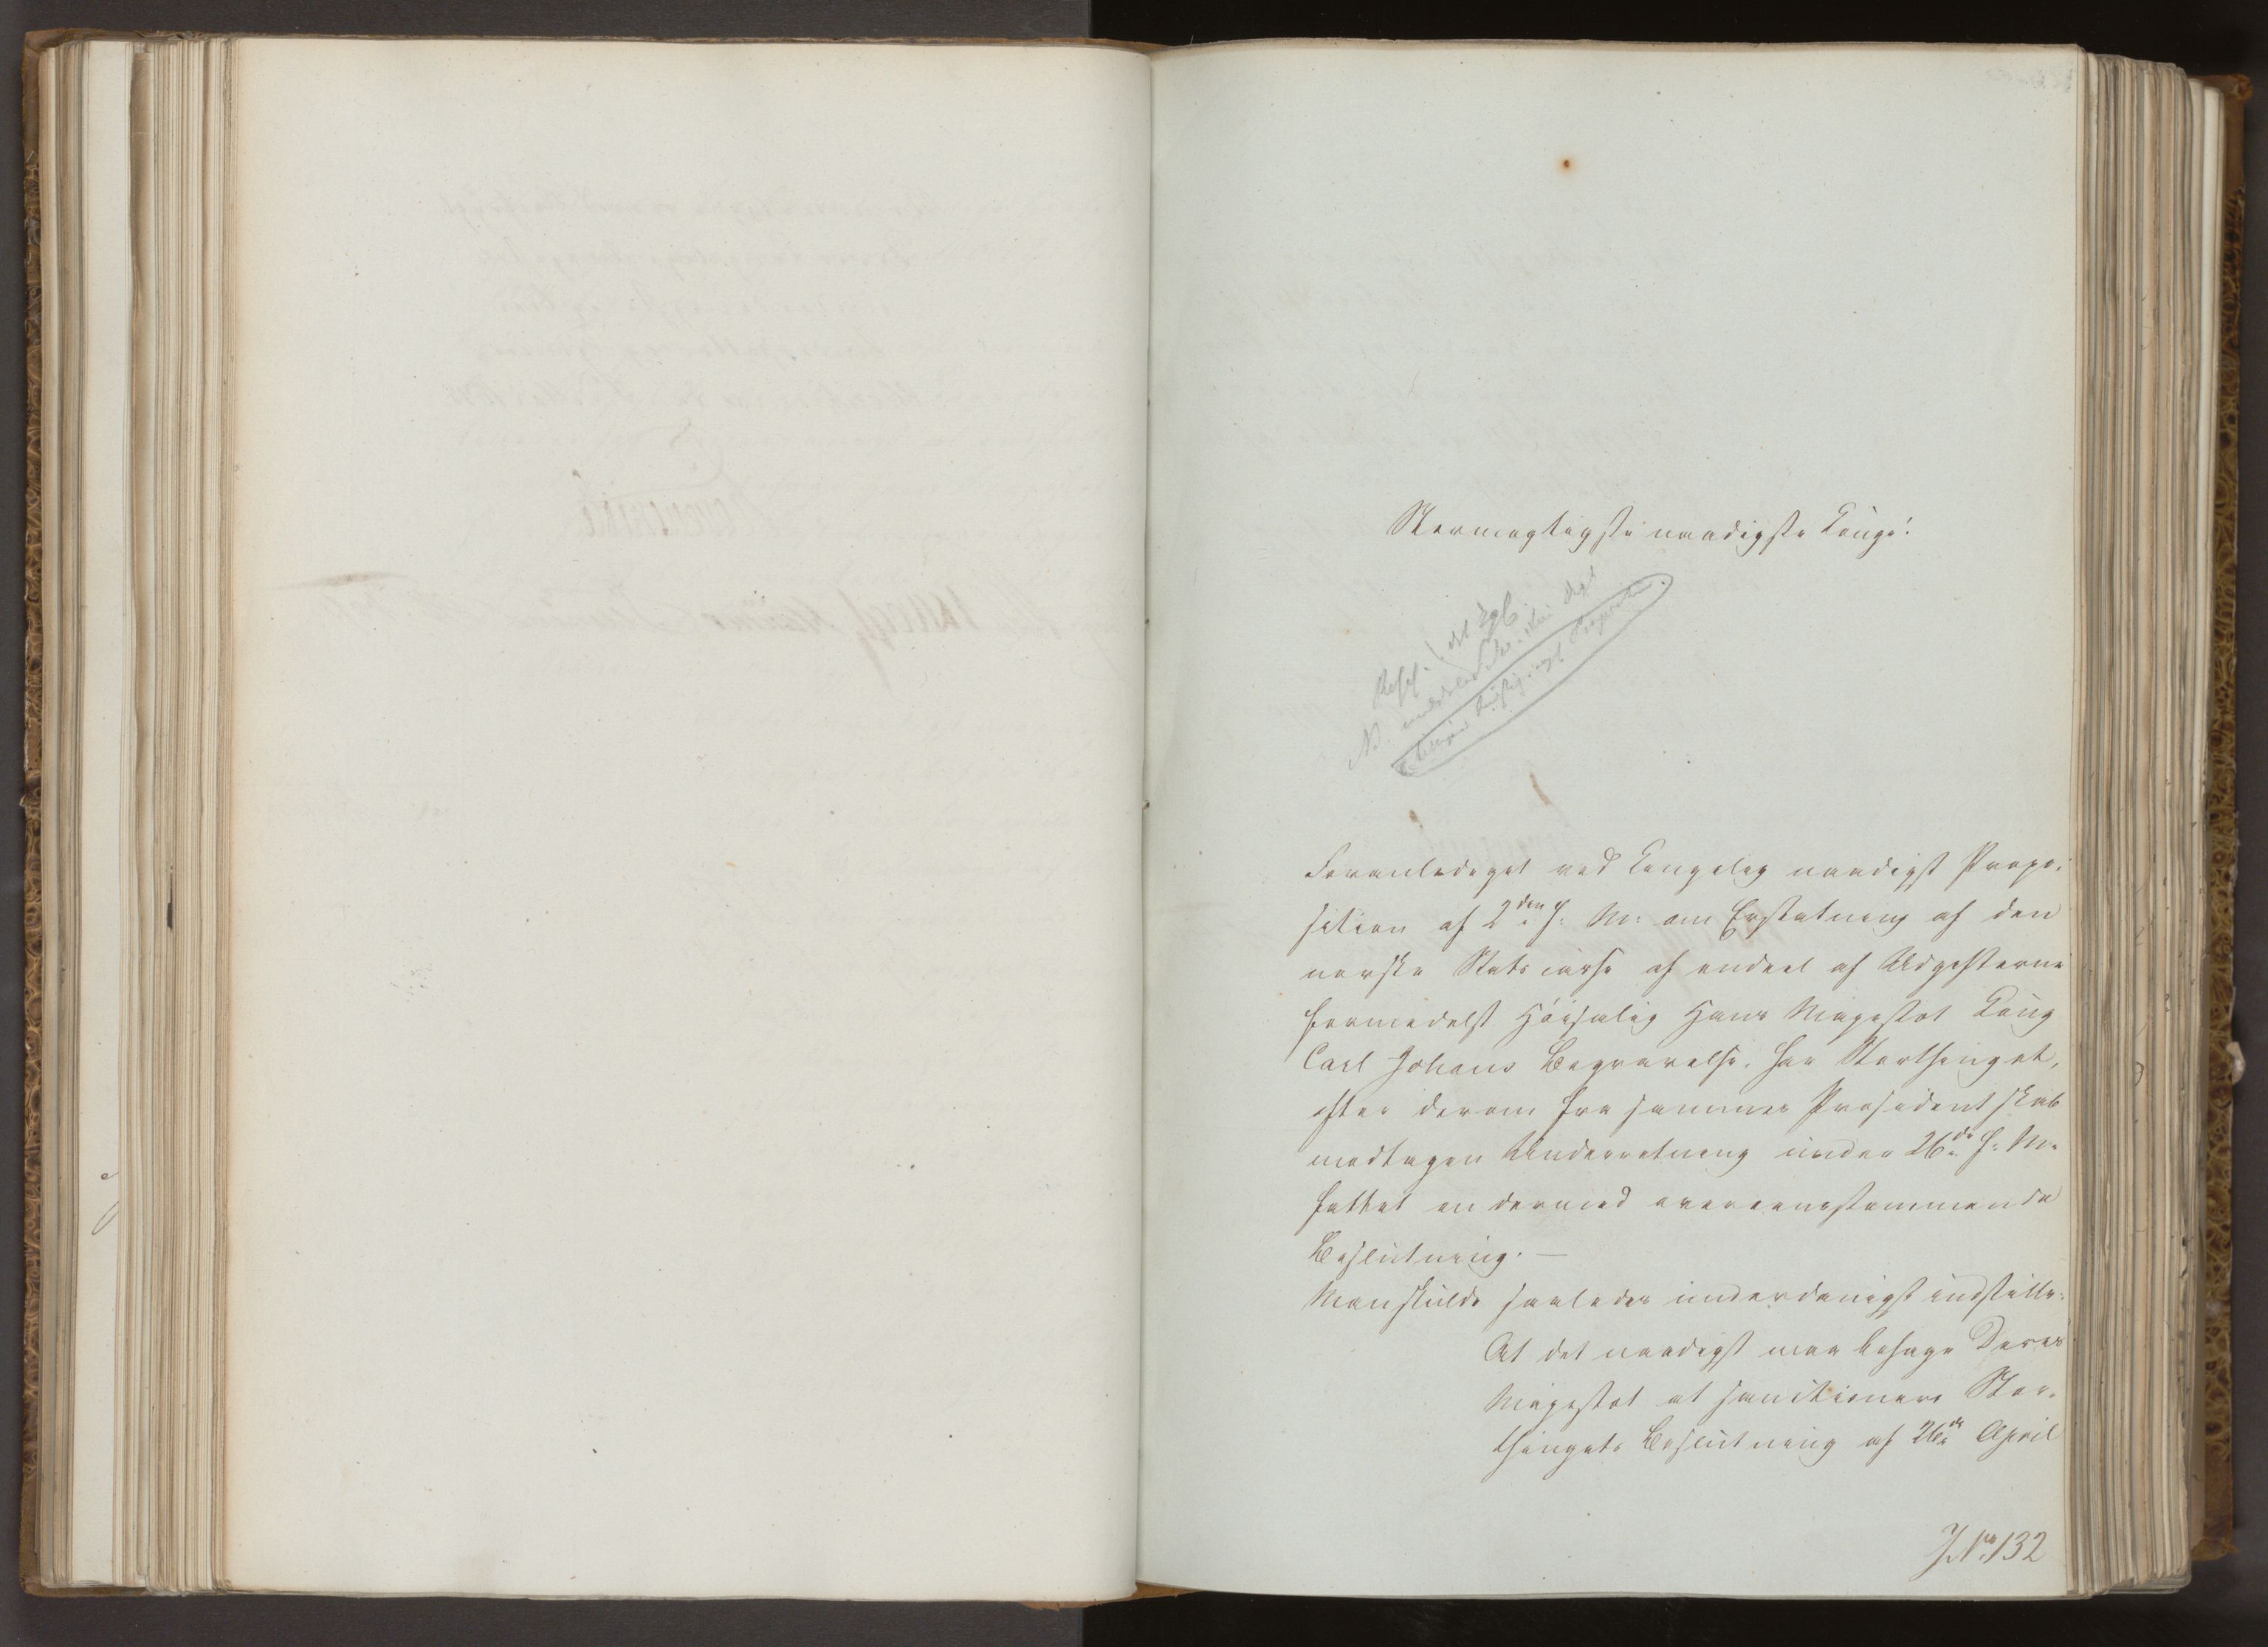 Stormægtigste naadigste Konge!
Foranlediget ved Kongelig naadigst Propo-
sition af 2den f: M: om Erstatning af den
norske Statscasse af endeel af Udgifterne
formedelst Høisalig Hans Majestæt Kong
Carl Johans Begravelse, har Storthinget,
efter derom fra sammes Præsidentskab
modtagen Underretning under 26de f: M:
fattet en dermed overeensstemmende
Beslutning. —
Man skulde saaledes underdanigst indstille:
At det naadigst maa behage Deres
Majestæt at sanctionere Stor-
thingets Beslutning af 26de April
J. No 132